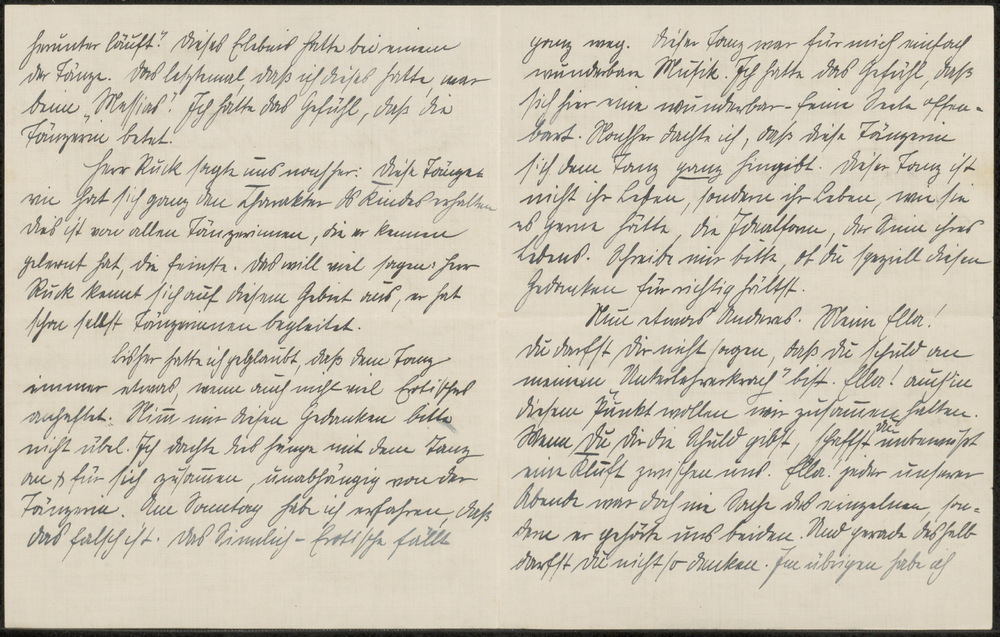 herunter läuft." Dieses Erlebnis hatte bei einem
der Tänze. Das letztemal, daß ich dieses hatte, war
beim "Messias". Ich hatte das Gefühl, daß die
Tänzerin betet.
Herr Ruck sagte uns nachher: Diese Tänze-
rin hat sich ganz den Charakter des Kindes erhalten
Dies ist von allen Tänzerinnen, die er kennen
gelernt hat, die feinste. Das will viel sagen: Herr
Ruck kennt sich auf diesem Gebiet aus, er hat
schon selbst Tänzerinnen begleitet.
Bisher hatte ich geglaubt, daß dem Tanz
immer etwas, wenn auch nicht viel Erotisches
anhaftet. Nimm mir diesen Gedanken bitte
nicht übel. Ich dachte das hänge mit dem Tanz
an & für sich zusammen, unabhängig von der
Tänzerin. Am Sonntag habe ich erfahren, daß
das falsch ist. Das Sinnlich-Erotische fällt
ganz weg. Dieser Tanz war für mich einfach
wunderbare Musik. Ich hatte das Gefühl, daß
sich hier eine wunderbar-feine Seele offen-
bart. Nachher dachte ich, daß diese Tänzerin
sich dem Tanz ganz hingibt. Dieser Tanz ist
nicht ihr Leben, sondern ihr Leben, wie sie
es gerne hätte, die Idealform, der Sinn ihres
Lebens. Schreibe mir bitte, ob du speziell diesen
Gedanken für richtig hältst.
Nun etwas Anderes. Mein Ella!
Du darfst Dir nicht sagen, daß Du schuld an
meinem "Unterlehrerkrach" bist. Ella! auch in
diesem Punkt wollen wir zusammen halten.
Wenn Du Dir die Schuld gibst, schaffst du unbewusst
eine Kluft zwischen uns. Ella! jeder unserer
Abende war doch nie Sache des einzelnen, son-
dern er gehörte uns beiden. Und gerade deshalb
darfst Du nicht so denken. Im übrigen habe ich